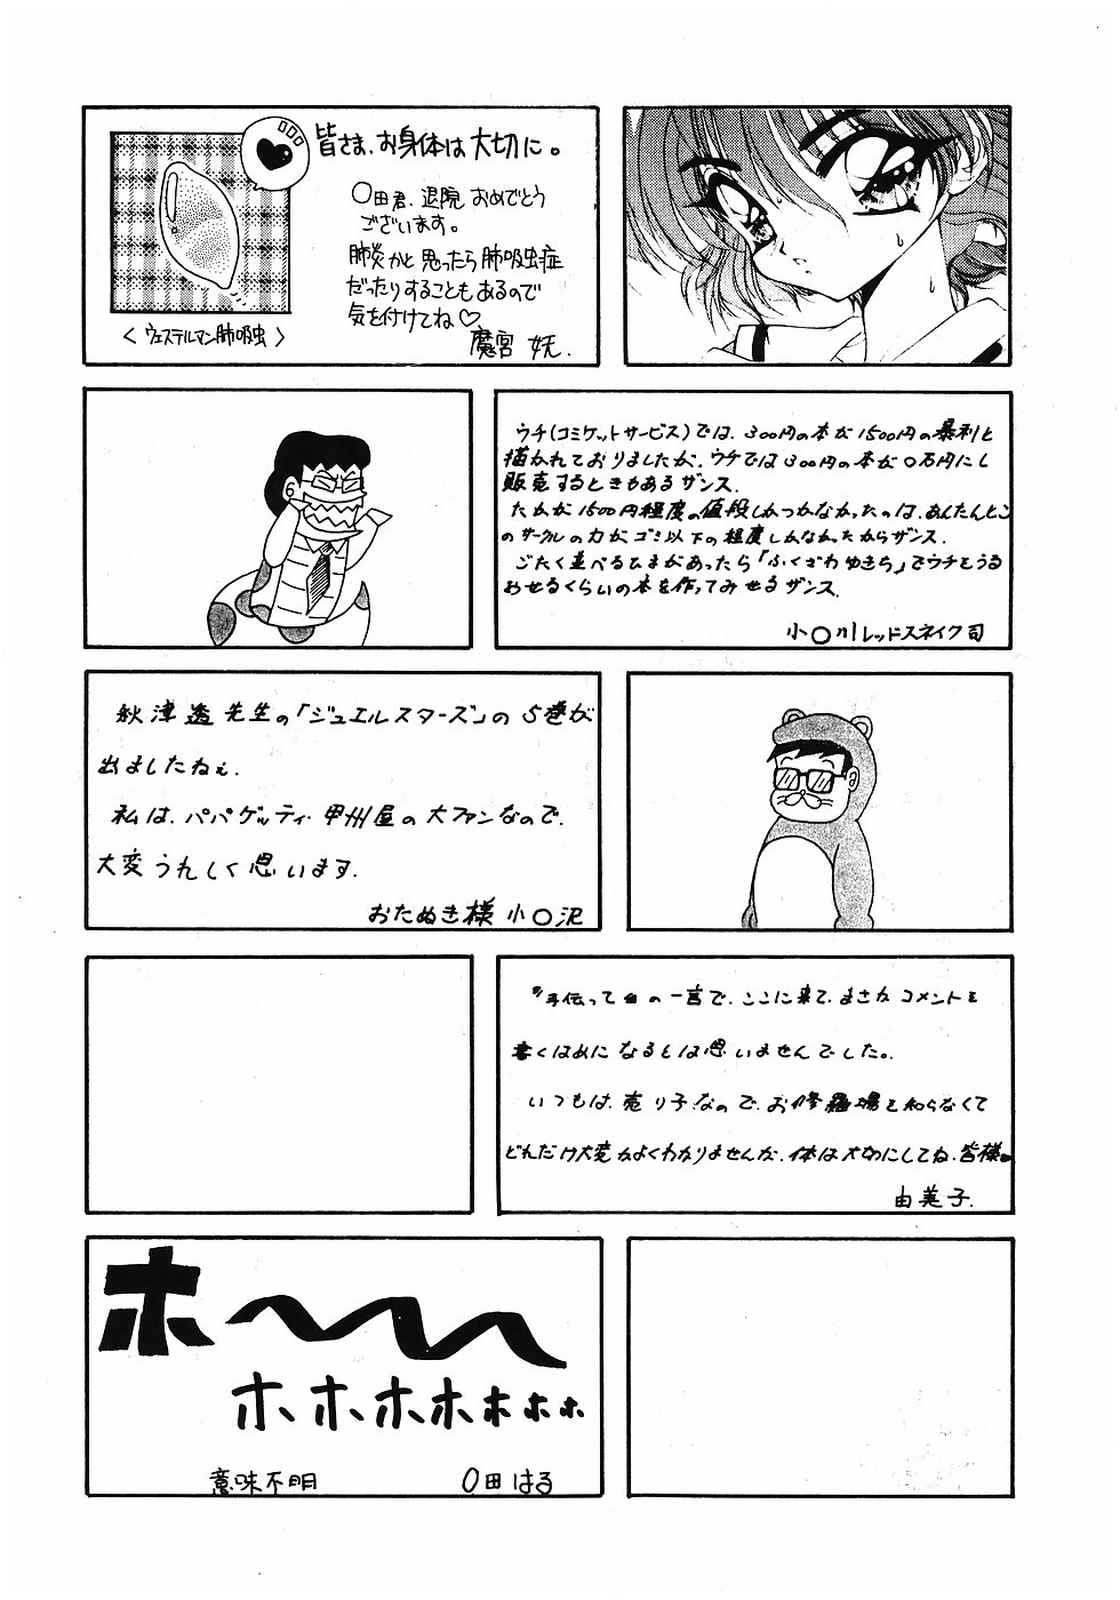 皆さま、お身体は大切に。
〇田君、退院おめでとう
ございます。
肺炎かと思ったら肺吸虫症
だったりすることもあるので
気を付けてね♡
魔宮 妖.
＜ウェステルマン肺吸虫＞
ウチ(コミケットサービス)では、300円の本が1500円の暴利と
描かれておりましたが、ウチでは300円の本が〇万円にし
販売するときもあるザンス.
たかが1500円程度の値段しかつかなかったのは、あんたんとこ
のサークルの力がゴミ以下の程度しかなかったからザンス.
ごたく並べるひまがあったら「ふくざわゆきち」でウチをうる
おせるくらいの本を作ってみせるザンス.
小〇川レッドスネイク司
秋津透先生の「ジュエルスターズ」の5巻が
出ましたねぇ.
私は、パパゲッティ甲州屋の大ファンなので、
大変うれしく思います.
おたぬき様 小〇沢
〃手伝って〃の一言で、ここに来て、まさか コメントを
書くはめになるとは思いませんでした。
いつもは、売り子なので、お修羅場を知らなくて
どれだけ大変かよくわかりませんが、体は大切にしてね、皆様。
由美子.
ホ〜〜
ホホホホホホホ
意味不明 〇田はる